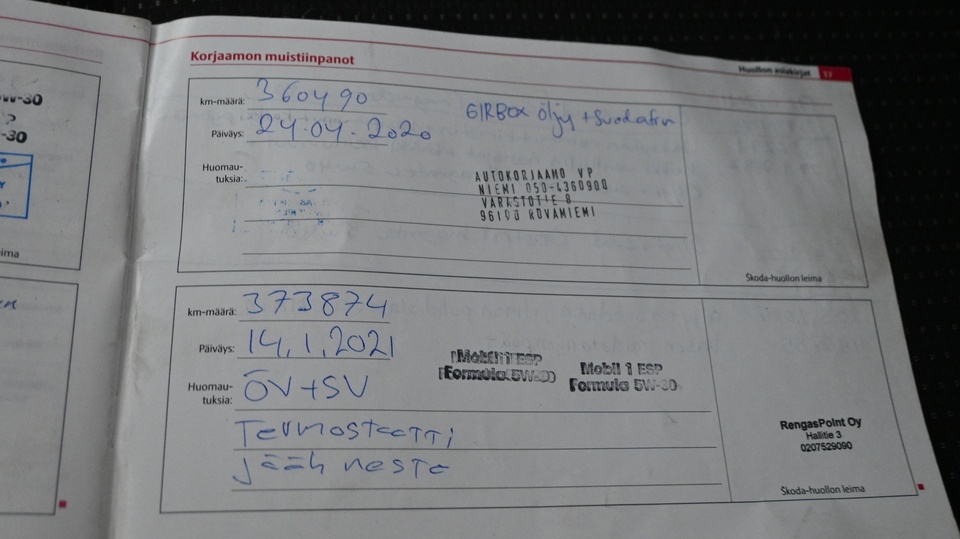 W-30
-30
Y
ima
Korjaamon muistiinpanot
Huollon asiakirjat 17
km-määrä: 360490
Päiväys: 24.04.2020
GIRBOX öljy + Suodatin
Huomau-
tuksia:
AUTOKORJAAMO VP
NIEMI 050-4360900
VARASTOTIE 8
96100 ROVANIEMI
Skoda-huollon leima
km-määrä: 373874
Päiväys: 14.1.2021
Huomau-
tuksia: ÖV+SV
Mobil 1 ESP
Formula 5W-30
Mobil 1 ESP
Formula 5W-30
Termostaatti
jääh neste
RengasPoint Oy
Hallitie 3
0207529090
Skoda-huollon leima